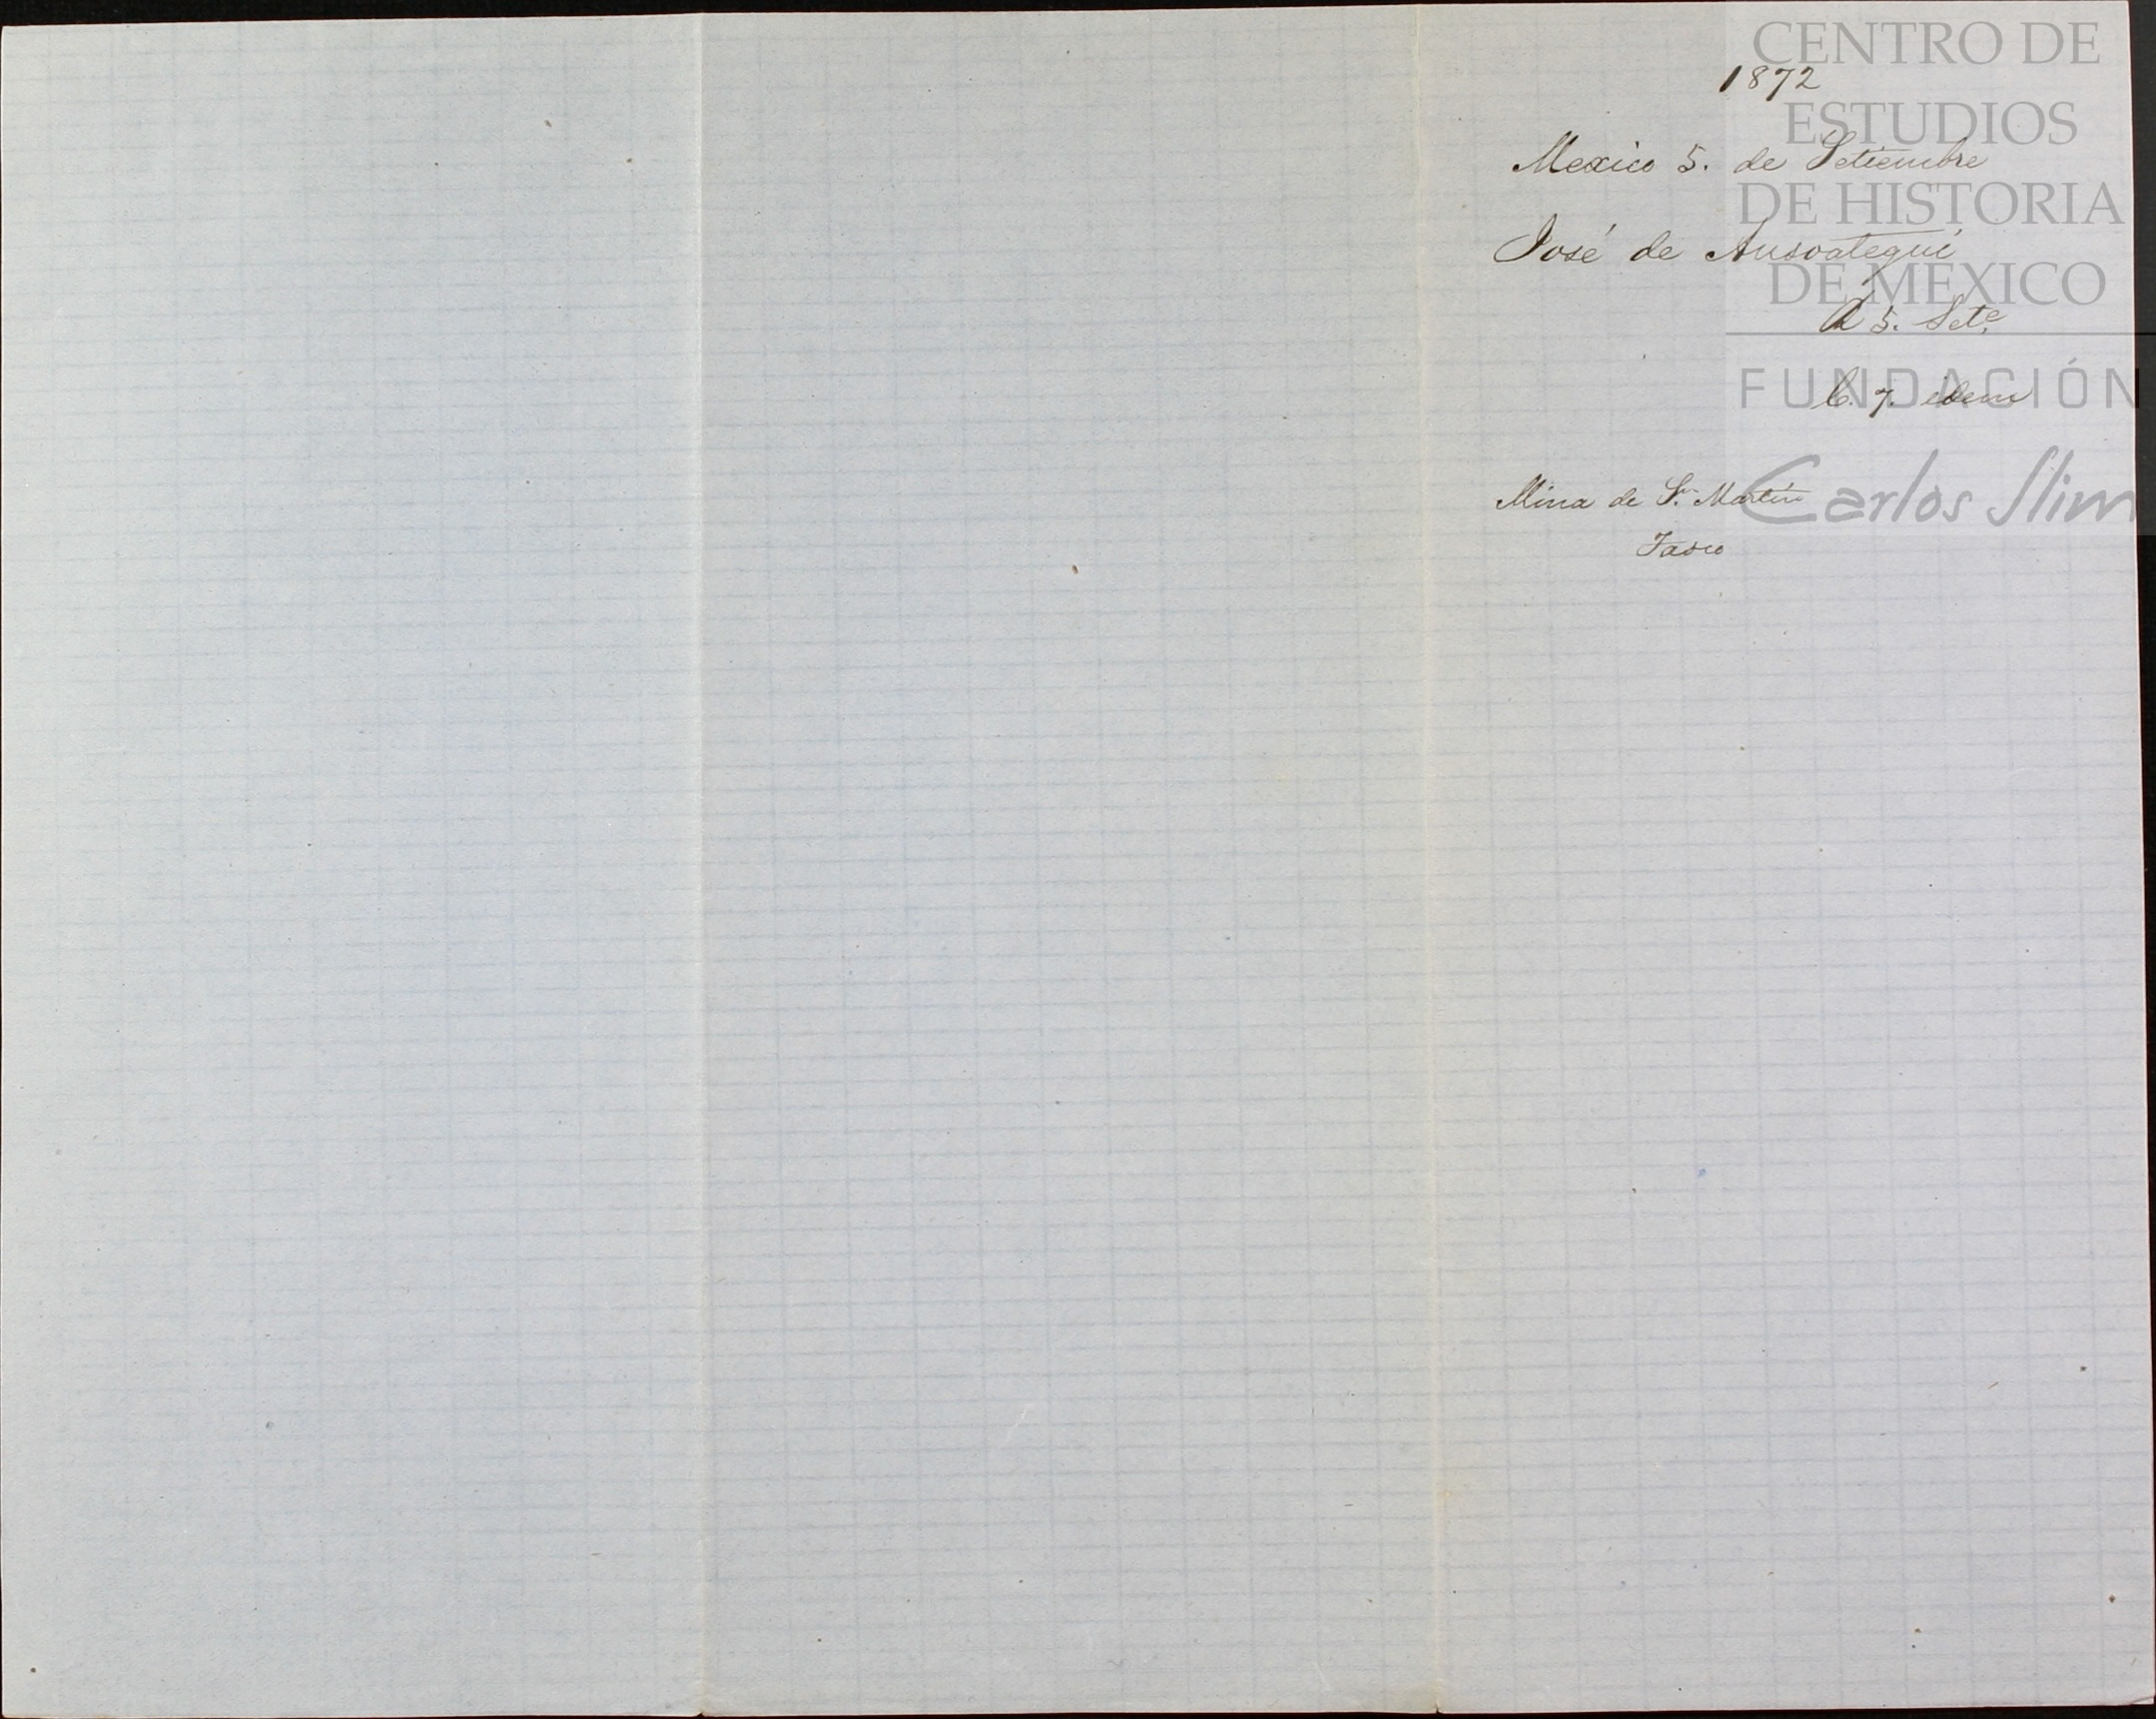 CENTRO DE
ESTUDIOS
DE HISTORIA
DE MÉXICO
FUNDACIÓN
Carlos Slim
1872
Mexico 5. de Setiembre
José de Ansoategui
R 5. Set.e
C. 7. idem
Mina de S.n Martin
Tasco